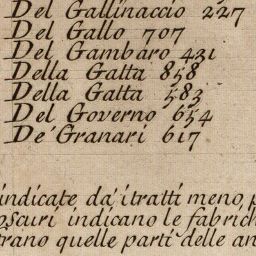 Del Gallinaccio 227
Del Gallo 707
Del Gambaro 431
Della Gatta 858
Della Gatta 583
Del Governo 654
De' Granari 617
indicate da i tratti meno
oscuri indicano le fabrich
trano quelle parti delle an